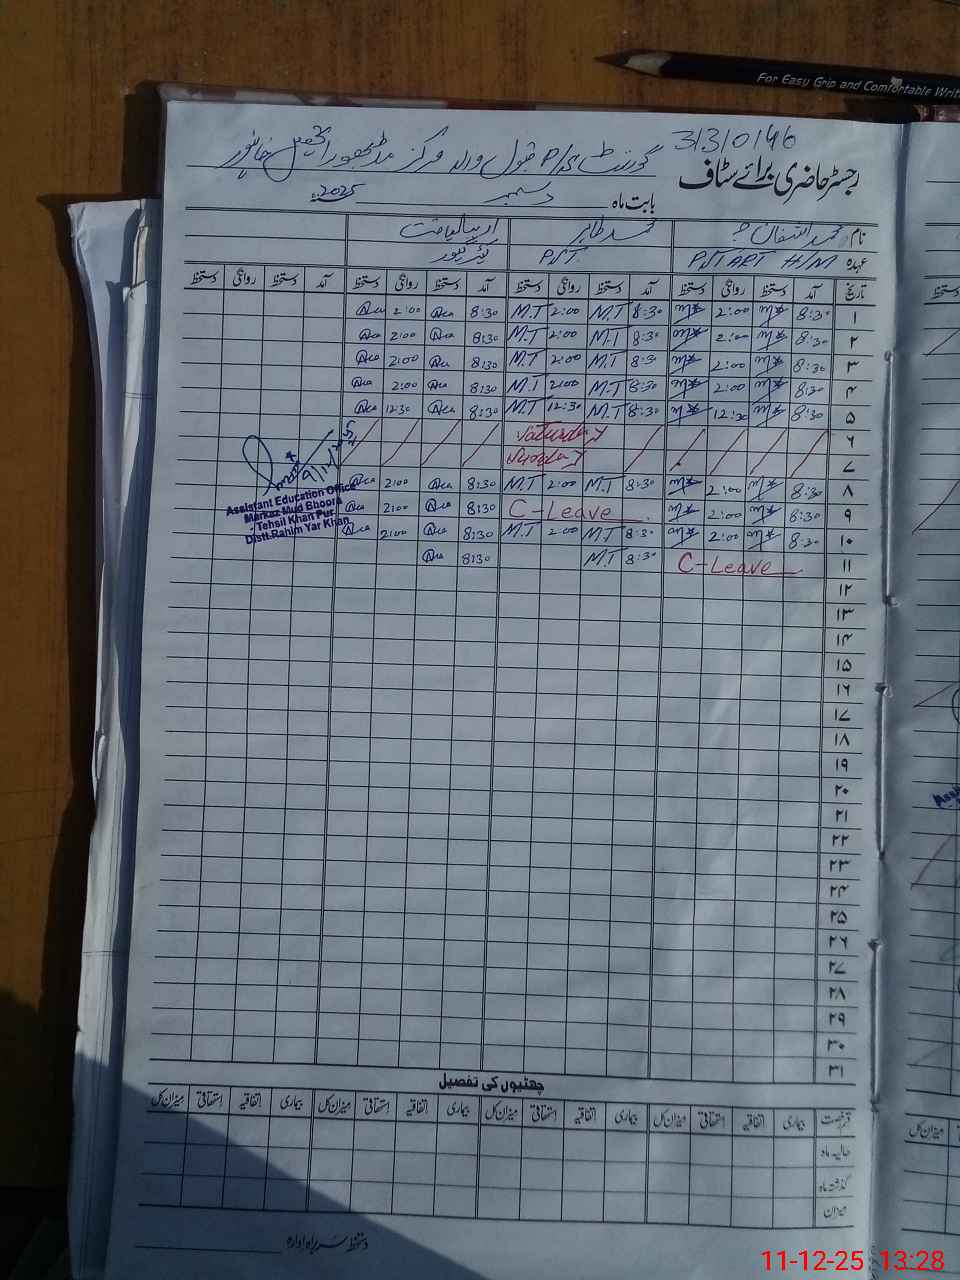 For Easy Grip and Comfortable Writ
31310146
رجسٹر حاضری برائے سٹاف
گورنمنٹ P/S قبول والہ مرکز مڈ بھورا تحصیل خانپور
بابت ماہ دسمبر 2025ء
نام محمد محمد طاہر
عہدہ PST ART H/M PST کیئر گیور
تاریخ آمد دستخط روانگی دستخط آمد دستخط روانگی دستخط آمد دستخط روانگی دستخط آمد دستخط روانگی دستخط
۱ 8:30 2:00 8:30 M.T 2:00 M.T 8:30 2:00
۲ 8:30 2:00 8:30 M.T 2:00 M.T 8:30 2:00
۳ 8:30 2:00 8:30 M.T 2:00 M.T 8:30 2:00
۴ 8:30 2:00 8:30 M.T 2:00 M.T 8:30 2:00
۵ 8:30 12:30 8:30 M.T 12:30 M.T 8:30 12:30
۶ Saturday
۷ Sunday
۸ 8:30 2:00 8:30 M.T 2:00 M.T 8:30 2:00
۹ 8:30 2:00 C-Leave 8:30 2:00
۱۰ 8:30 2:00 8:30 M.T 2:00 M.T 8:30 2:00
۱۱ C-Leave 8:30 M.T 8:30
Assistant Education Officer
Markaz Mud Bhoora
Tehsil Khan Pur
Distt.Rahim Yar Khan
۱۲
۱۳
۱۴
۱۵
۱۶
۱۷
۱۸
۱۹
۲۰
۲۱
۲۲
۲۳
۲۴
۲۵
۲۶
۲۷
۲۸
۲۹
۳۰
۳۱
چھٹیوں کی تفصیل
قسم رخصت بیماری اتفاقیہ استحقاقی میزان کل بیماری اتفاقیہ استحقاقی میزان کل بیماری اتفاقیہ استحقاقی میزان کل بیماری اتفاقیہ استحقاقی میزان کل
حالیہ ماہ
گذشتہ ماہ
میزان
دستخط سربراہ ادارہ
11-12-25 13:28